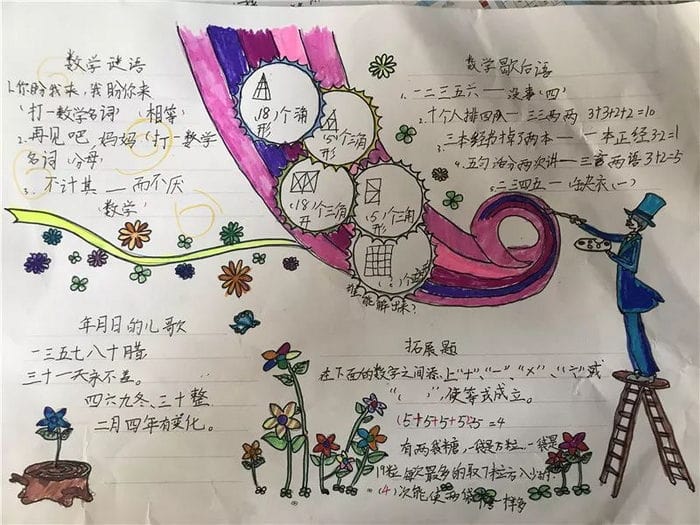 数学谜语
1.你盼我来,我盼你来
(打一数学名词)(相等)
2.再见吧,妈妈(打一数学
名词)分母
3.不计其——而不厌
(数学)
(18)个三角
形
(5)个三角
形
(18)个三角
形
(5)个三角
形
谁能解出来?
数学歇后语
1.一二三五六——没事(四)
2.十个人排四队——三三两两 3+3+2+2=10
3.三本经书掉了两本——一本正经 3-2=1
4.五句话分两次讲——三言两语 3+2=5
5.二三四五——缺衣(一)
年月日的儿歌
一三五七八十月腊
三十一天永不差。
四六九冬三十整
二月四年有变化。
拓展题
在下面的数字之间添上"+"、"一"、"×"、"÷"或
"( )",使等式成立。
(5+5+5+5)÷5=4
有两袋糖,一袋是 粒,一袋是
19粒 每次最多的取 粒
(4)次能使两袋 一样多